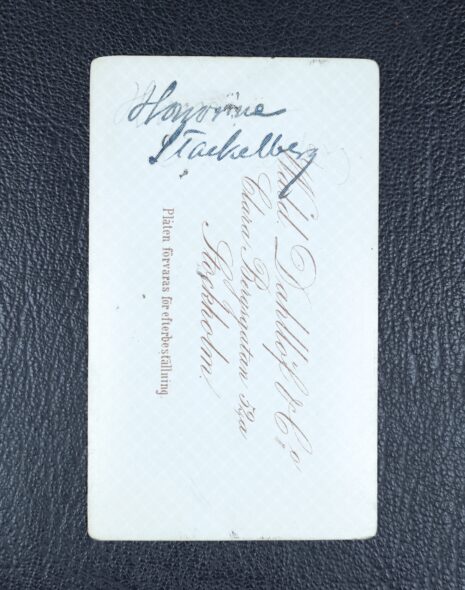 Honorine
Stackelberg
Wald. Dahllöf & Co
Clara Bergsgatan 52a
Stockholm.
Plåten förvaras för efterbeställning.